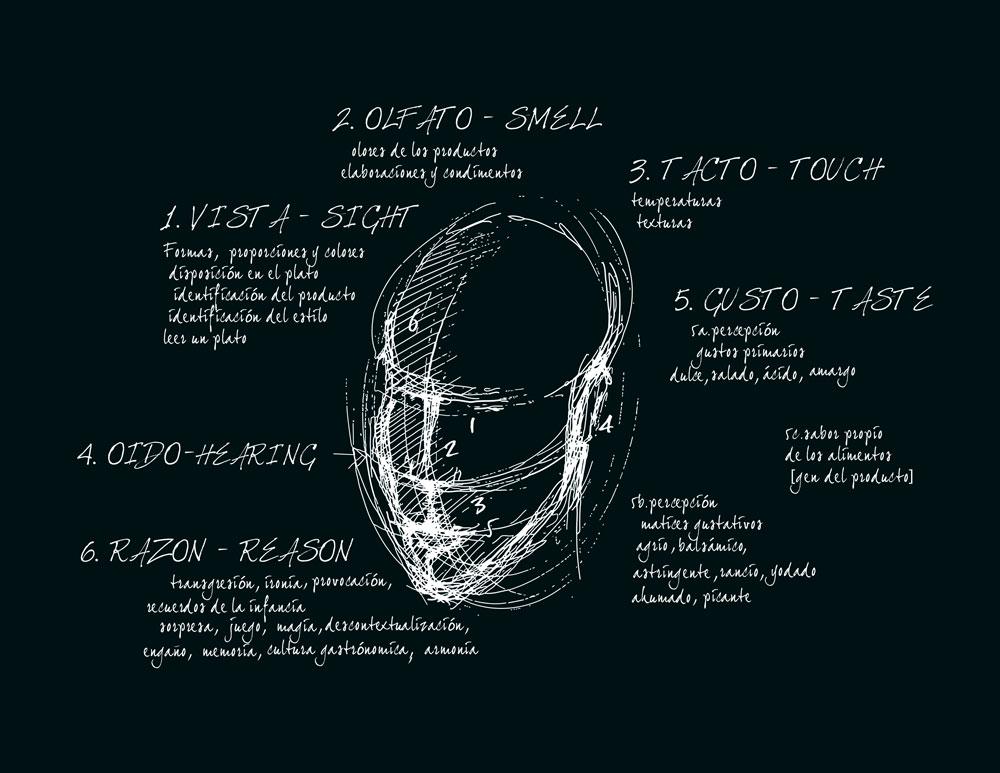 2. OLFATO - SMELL
olores de los productos
elaboraciones y condimentos
3. TACTO - TOUCH
temperaturas
texturas
1. VISTA - SIGHT
Formas, proporciones y colores
disposición en el plato
identificación del producto
identificación del estilo
leer un plato
5. GUSTO - TASTE
5a.percepción
gustos primarios
dulce, salado, ácido, amargo
6
1
4
2
3
5
4. OIDO-HEARING
5c.sabor propio
de los alimentos
[gen del producto]
5b.percepción
matices gustativos
agrio, balsámico,
astringente, rancio, yodado
ahumado, picante
6. RAZON - REASON
transgresión, ironia, provocación,
recuerdos de la infancia
sorpresa, juego, magia, descontextualización,
engaño, memoria, cultura gastrónomica, armonia